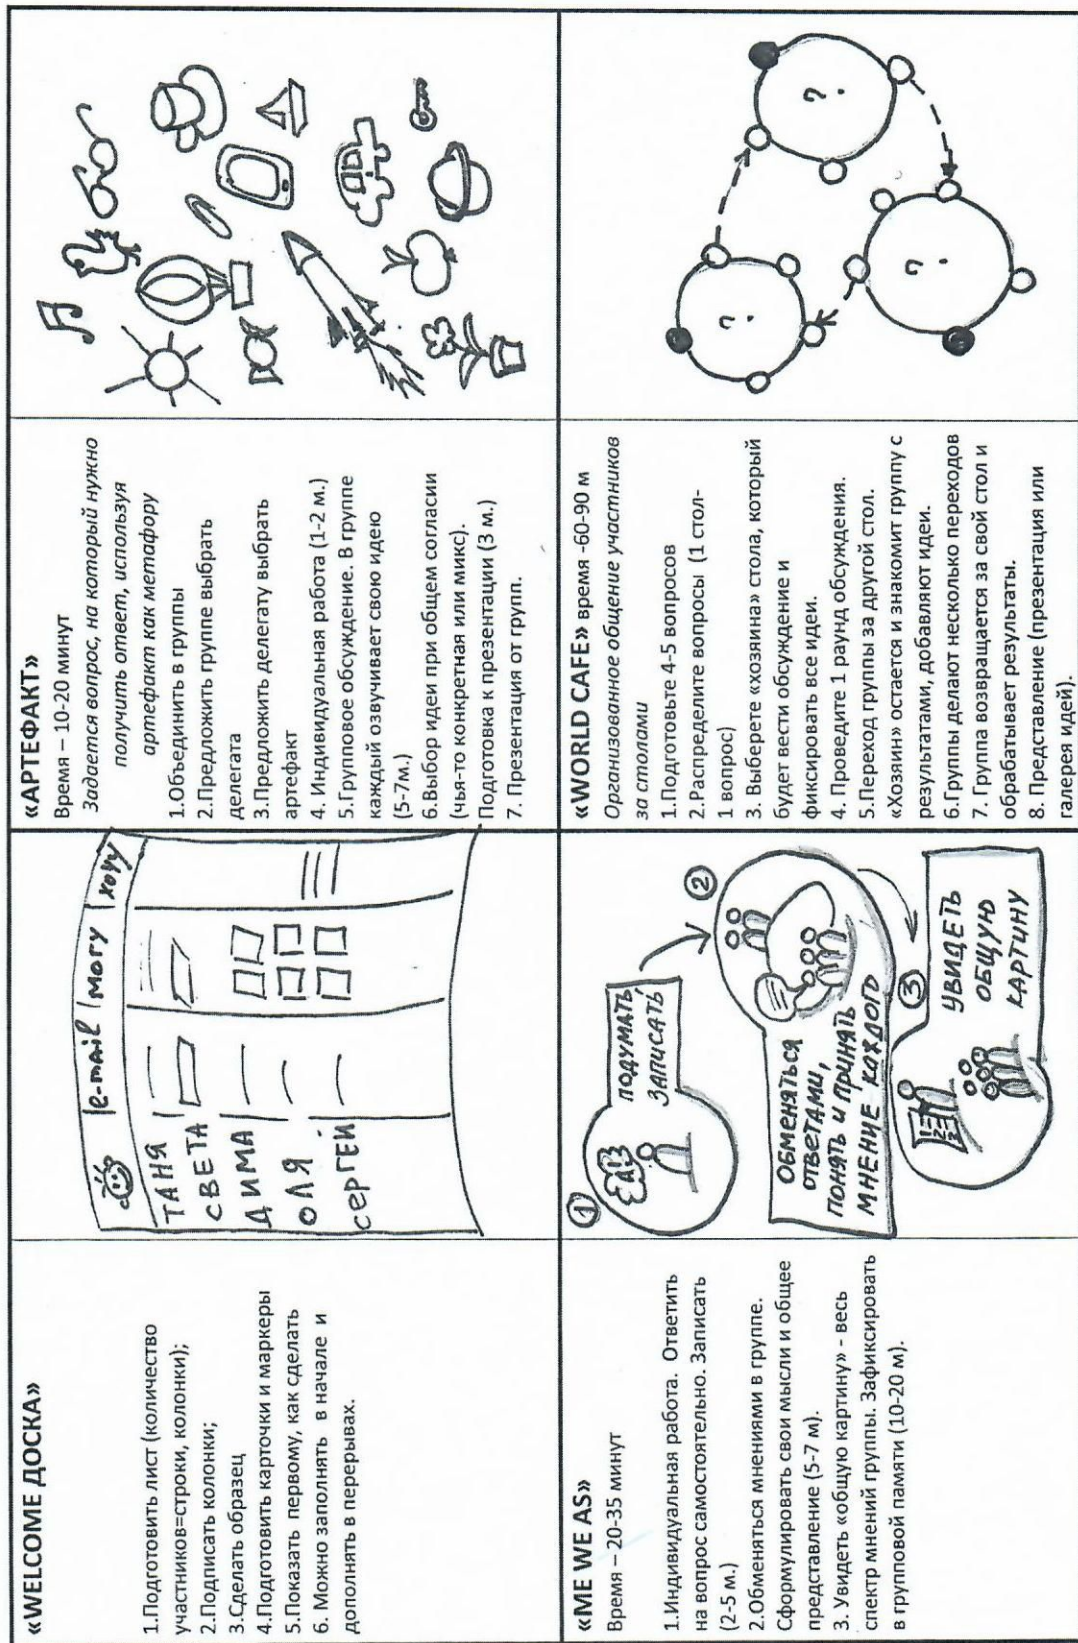 «WELCOME ДОСКА»
1.Подготовить лист (количество
участников=строки, колонки);
2.Подписать колонки;
3.Сделать образец
4.Подготовить карточки и маркеры
5.Показать первому, как сделать
6. Можно заполнять в начале и
дополнять в перерывах.
e-mail
могу
хочу
ТАНЯ
СВЕТА
ДИМА
ОЛЯ
СЕРГЕЙ
«АРТЕФАКТ»
Время – 10-20 минут
Задается вопрос, на который нужно
получить ответ, используя
артефакт как метафору
1.Объединить в группы
2.Предложить группе выбрать
делегата
3.Предложить делегату выбрать
артефакт
4. Индивидуальная работа (1-2 м.)
5.Групповое обсуждение. В группе
каждый озвучивает свою идею
(5-7м.)
6.Выбор идеи при общем согласии
(чья-то конкретная или микс).
Подготовка к презентации (3 м.)
7. Презентация от групп.
«ME WE AS»
Время – 20-35 минут
1.Индивидуальная работа. Ответить
на вопрос самостоятельно. Записать
(2-5 м.)
2.Обменяться мнениями в группе.
Сформулировать свои мысли и общее
представление (5-7 м).
3. Увидеть «общую картину» - весь
спектр мнений группы. Зафиксировать
в групповой памяти (10-20 м).
1
ПОДУМАТЬ,
ЗАПИСАТЬ
2
ОБМЕНЯТЬСЯ
ОТВЕТАМИ,
ПОНЯТЬ И ПРИНЯТЬ
МНЕНИЕ КАЖДОГО
3
УВИДЕТЬ
ОБЩУЮ
КАРТИНУ
«WORLD CAFE» время -60-90 м
Организованное общение участников
за столами
1.Подготовьте 4-5 вопросов
2.Распределите вопросы (1 стол-
1 вопрос)
3. Выберете «хозяина» стола, который
будет вести обсуждение и
фиксировать все идеи.
4. Проведите 1 раунд обсуждения.
5.Переход группы за другой стол.
«Хозяин» остается и знакомит группу с
результатами, добавляют идеи.
6.Группы делают несколько переходов
7. Группа возвращается за свой стол и
обрабатывает результаты.
8. Представление (презентация или
галерея идей).
?
?
?